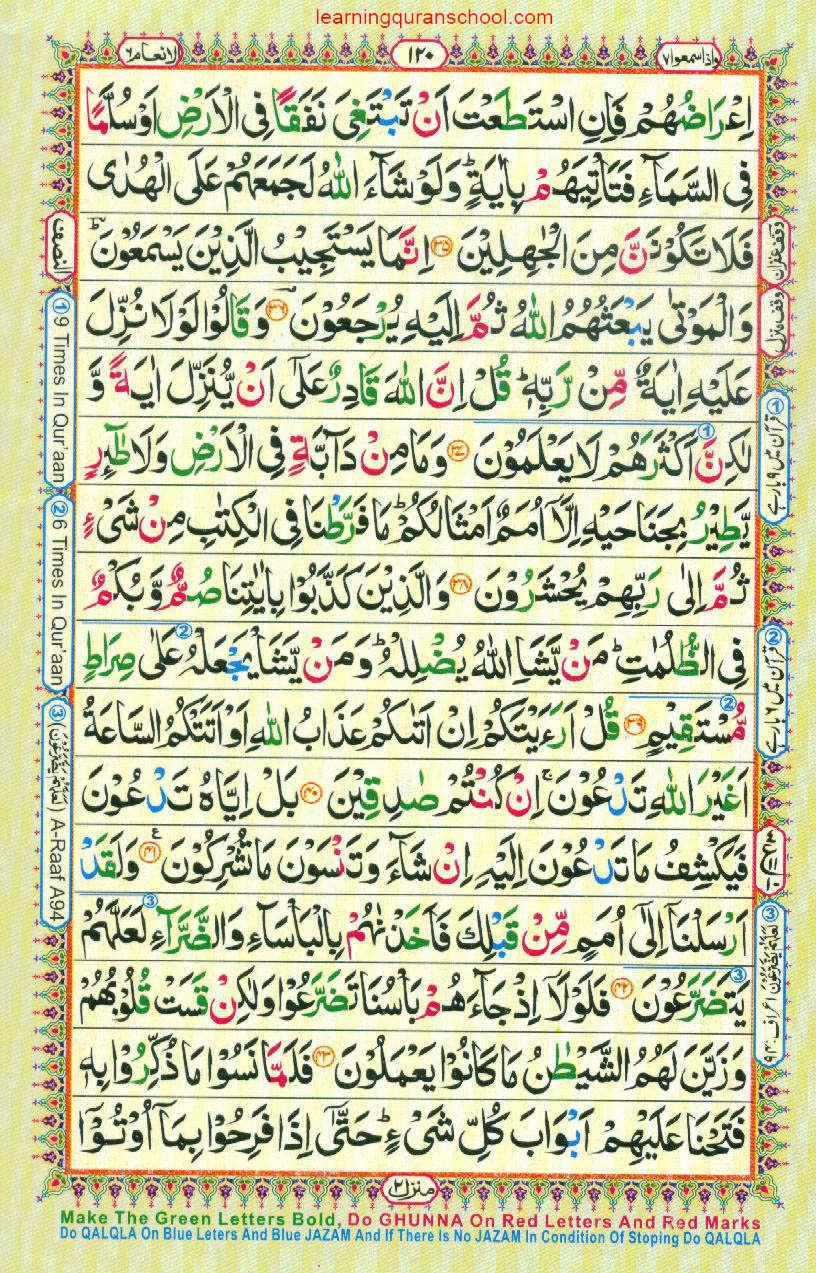 learningquranschool.com
واذاسمعوا۷
۱۲۰
الانعام۶
اِعْرَاضُهُمْ فَاِنِ اسْتَطَعْتَ اَنْ تَبْتَغِىَ نَفَقًا فِى الْاَرْضِ اَوْ سُلَّمًا
فِى السَّمَآءِ فَتَاْتِيَهُمْ بِاٰيَةٍ ؕ وَلَوْ شَآءَ اللّٰهُ لَجَمَعَهُمْ عَلَى الْهُدٰى
فَلَا تَكُوْنَنَّ مِنَ الْجٰهِلِيْنَ ۳۵ اِنَّمَا يَسْتَجِيْبُ الَّذِيْنَ يَسْمَعُوْنَ ؕ
وَالْمَوْتٰى يَبْعَثُهُمُ اللّٰهُ ثُمَّ اِلَيْهِ يُرْجَعُوْنَ ۳۶ وَقَالُوْا لَوْلَا نُزِّلَ
عَلَيْهِ اٰيَةٌ مِّنْ رَّبِّهٖ ؕ قُلْ اِنَّ اللّٰهَ قَادِرٌ عَلٰٓى اَنْ يُّنَزِّلَ اٰيَةً وَّ
لٰكِنَّ اَكْثَرَهُمْ لَا يَعْلَمُوْنَ ۳۷ وَمَا مِنْ دَآبَّةٍ فِى الْاَرْضِ وَلَا طٰٓئِرٍ
يَّطِيْرُ بِجَنَاحَيْهِ اِلَّاۤ اُمَمٌ اَمْثَالُكُمْ ؕ مَا فَرَّطْنَا فِى الْكِتٰبِ مِنْ شَىْءٍ
ثُمَّ اِلٰى رَبِّهِمْ يُحْشَرُوْنَ ۳۸ وَالَّذِيْنَ كَذَّبُوْا بِاٰيٰتِنَا صُمٌّ وَّبُكْمٌ
فِى الظُّلُمٰتِ ؕ مَنْ يَّشَاِ اللّٰهُ يُضْلِلْهُ ؕ وَمَنْ يَّشَاْ يَجْعَلْهُ عَلٰى صِرَاطٍ
مُّسْتَقِيْمٍ ۳۹ قُلْ اَرَءَيْتَكُمْ اِنْ اَتٰىكُمْ عَذَابُ اللّٰهِ اَوْ اَتَتْكُمُ السَّاعَةُ
اَغَيْرَ اللّٰهِ تَدْعُوْنَ ۚ اِنْ كُنْتُمْ صٰدِقِيْنَ ۴۰ بَلْ اِيَّاهُ تَدْعُوْنَ
فَيَكْشِفُ مَا تَدْعُوْنَ اِلَيْهِ اِنْ شَآءَ وَتَنْسَوْنَ مَا تُشْرِكُوْنَ ۴۱ وَلَقَدْ
اَرْسَلْنَاۤ اِلٰٓى اُمَمٍ مِّنْ قَبْلِكَ فَاَخَذْنٰهُمْ بِالْبَاْسَآءِ وَالضَّرَّآءِ لَعَلَّهُمْ
يَتَضَرَّعُوْنَ ۴۲ فَلَوْلَاۤ اِذْ جَآءَهُمْ بَاْسُنَا تَضَرَّعُوْا وَلٰكِنْ قَسَتْ قُلُوْبُهُمْ
وَزَيَّنَ لَهُمُ الشَّيْطٰنُ مَا كَانُوْا يَعْمَلُوْنَ ۴۳ فَلَمَّا نَسُوْا مَا ذُكِّرُوْا بِهٖ
فَتَحْنَا عَلَيْهِمْ اَبْوَابَ كُلِّ شَىْءٍ ؕ حَتّٰٓى اِذَا فَرِحُوْا بِمَاۤ اُوْتُوْۤا
وقف غفران
وقف منزل
① قرآن میں ۹ بار ہے
② قرآن میں ۶ بار ہے
③ لَعَلَّهُمْ يَضَّرَّعُوْنَ اعراف: ۹۴
النصف
① 9 Times In Qur'aan
② 6 Times In Qur'aan
③ (لَعَلَّهُمْ يَضَّرَّعُوْنَ) A-Raaf A94
منزل۲
Make The Green Letters Bold, Do GHUNNA On Red Letters And Red Marks
Do QALQLA On Blue Leters And Blue JAZAM And If There Is No JAZAM In Condition Of Stoping Do QALQLA